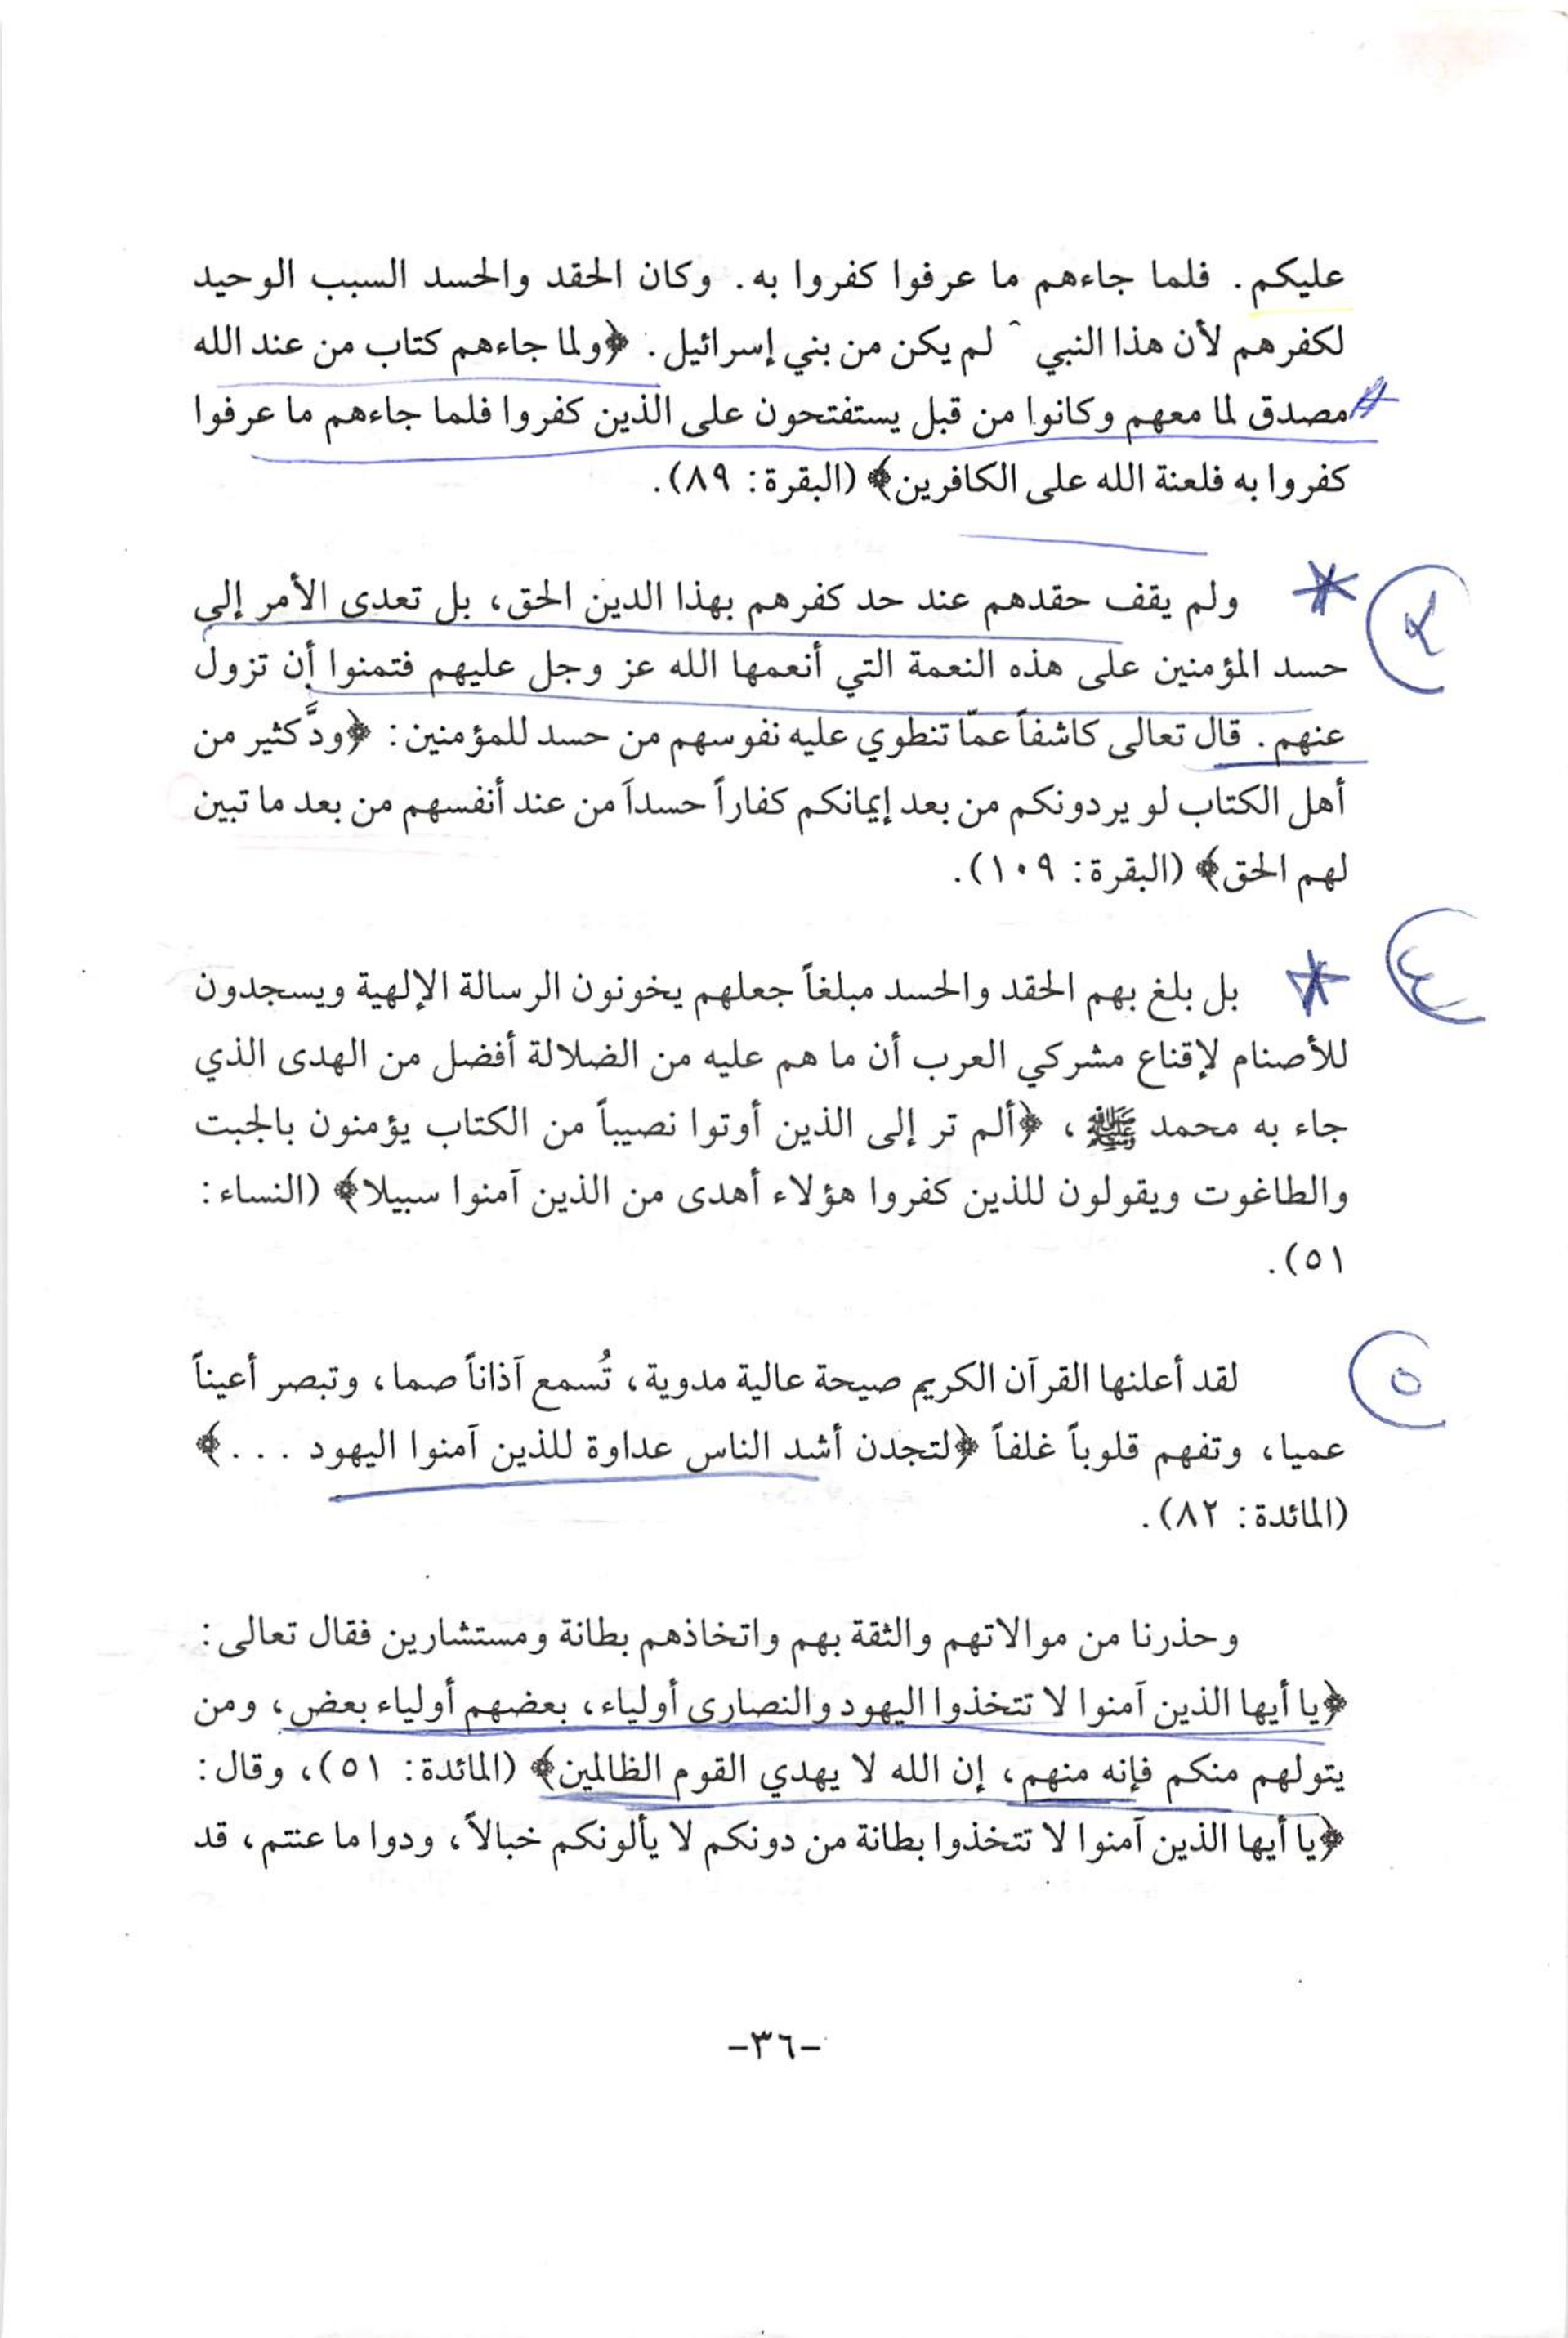 عليكم. فلما جاءهم ما عرفوا كفروا به. وكان الحقد والحسد السبب الوحيد
لكفرهم لأن هذا النبي لم يكن من بني إسرائيل. ﴿ولما جاءهم كتاب من عند الله
مصدق لما معهم وكانوا من قبل يستفتحون على الذين كفروا فلما جاءهم ما عرفوا
كفروا به فلعنة الله على الكافرين﴾ (البقرة: ٨٩).
ولم يقف حقدهم عند حد كفرهم بهذا الدين الحق، بل تعدى الأمر إلى
حسد المؤمنين على هذه النعمة التي أنعمها الله عز وجل عليهم فتمنوا أن تزول
عنهم. قال تعالى كاشفاً عمّا تنطوي عليه نفوسهم من حسد للمؤمنين: ﴿ودَّ كثير من
أهل الكتاب لو يردونكم من بعد إيمانكم كفاراً حسداً من عند أنفسهم من بعد ما تبين
لهم الحق﴾ (البقرة: ١٠٩).
٤
بل بلغ بهم الحقد والحسد مبلغاً جعلهم يخونون الرسالة الإلهية ويسجدون
للأصنام لإقناع مشركي العرب أن ما هم عليه من الضلالة أفضل من الهدى الذي
جاء به محمد ﷺ، ﴿ألم تر إلى الذين أوتوا نصيباً من الكتاب يؤمنون بالجبت
والطاغوت ويقولون للذين كفروا هؤلاء أهدى من الذين آمنوا سبيلا﴾ (النساء:
٥١).
٥
لقد أعلنها القرآن الكريم صيحة عالية مدوية، تُسمع آذاناً صما، وتبصر أعيناً
عميا، وتفهم قلوباً غلفاً ﴿لتجدن أشد الناس عداوة للذين آمنوا اليهود ...﴾
(المائدة: ٨٢).
وحذرنا من موالاتهم والثقة بهم واتخاذهم بطانة ومستشارين فقال تعالى:
﴿يا أيها الذين آمنوا لا تتخذوا اليهود والنصارى أولياء، بعضهم أولياء بعض، ومن
يتولهم منكم فإنه منهم، إن الله لا يهدي القوم الظالمين﴾ (المائدة: ٥١)، وقال:
﴿يا أيها الذين آمنوا لا تتخذوا بطانة من دونكم لا يألونكم خبالاً، ودوا ما عنتم، قد
-٣٦-